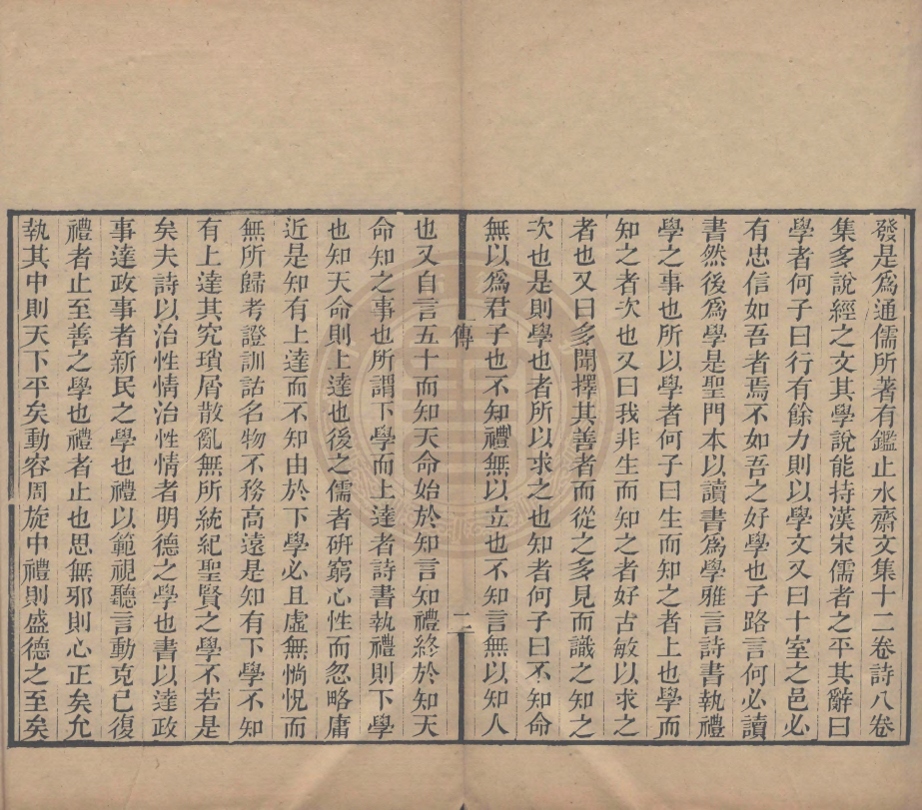 發是爲通儒所著有鑑止水齋文集十二卷詩八卷
集多說經之文其學說能持漢宋儒者之平其辭曰
學者何子曰行有餘力則以學文又曰十室之邑必
有忠信如吾者焉不如吾之好學也子路言何必讀
書然後爲學是聖門本以讀書爲學雅言詩書執禮
學之事也所以學者何子曰生而知之者上也學而
知之者次也又曰我非生而知之者好古敏以求之
者也又曰多聞擇其善者而從之多見而識之知之
次也是則學也者所以求之也知者何子曰不知命
無以爲君子也不知禮無以立也不知言無以知人
傳
二
也又自言五十而知天命始於知言知禮終於知天
命知之事也所謂下學而上達者詩書執禮則下學
也知天命則上達也後之儒者硏窮心性而忽略庸
近是知有上達而不知由於下學必且虛無惝怳而
無所歸考證訓詁名物不務高遠是知有下學不知
有上達其究瑣屑散亂無所統紀聖賢之學不若是
矣夫詩以治性情治性情者明德之學也書以達政
事達政事者新民之學也禮以範視聽言動克己復
禮者止至善之學也禮者止也思無邪則心正矣允
執其中則天下平矣動容周旋中禮則盛德之至矣